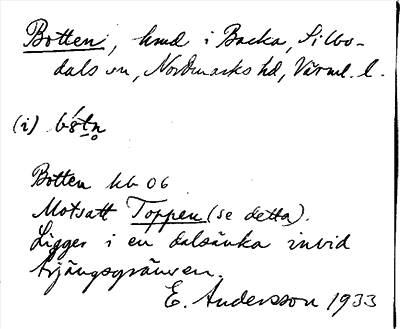 Botten, hmd i Backa, Silbo-
dals sn, Nordmarks hd, Värml. l.
(i)
Botten kb 06
Motsatt Toppen (se detta).
Ligger i en dalsänka invid
trjängsgränsen.
E. Andersson 1933